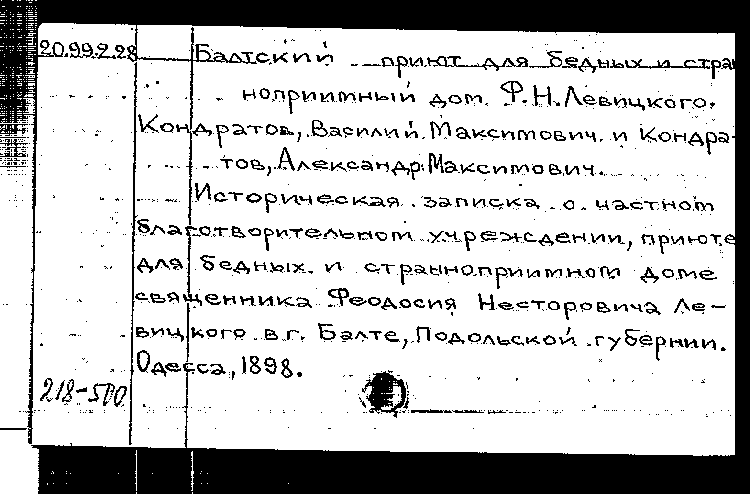 20.99.2.28 Балтский приют для бедных и стра
ноприимный дом Ф.Н.Левицкого.
Кондратов, Василий Максимович и Кондра-
тов, Александр Максимович.
Историческая записка о частном
благотворительном учреждении, приюте
для бедных и странноприимном доме
священника Феодосия Несторовича Ле-
вицкого в г. Балте, Подольской губернии.
Одесса, 1898.
218-500